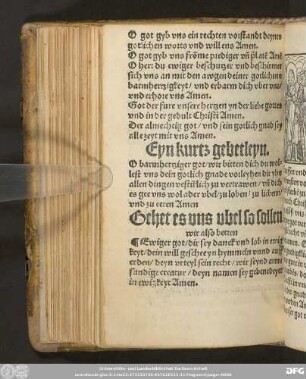 O got gyb vns ein rechten vorstandt deynes
gotlichen worts vnd willens Amen.
O got gyb vns frõme prediger vñ
O her du ewiger beschutzer vnd beschirmer
sich vns an mit den awgen deiner gotlichen
barmhertzigkeyt / vnd erbarm dich vber vns /
vnd erhore vns Amen.
Got der fure vnsere hertzen yn der liebe gottes
vnd in der gedult Christi Amen.
Der almechtig got / vnd sein gotlich gnad sey
alle zeyt mit vns Amen.
Eyn kurtz gebetleyn.
O barmhertziger got / wir bitten dich du wol-
lest vns dein gotlich gnade vorleyhen dir vber
allen dingen vestiklich zu vertrawen / vñ dich
es gee vns wol ader vbel zu loben / zu lieben /
vnd zu eeren Amen
Gehet es vns vbel so sollen
wir also betten
¶ Ewiger got / dir sey danck vnd lob in ewig
keyt / dein will geschee yn hymmeln vnd auff
erden / deyn vrteyl sein recht / wir seynd arme
sundige creatur / deyn namen sey gebenedeyet
in ewigkeyt Amen.